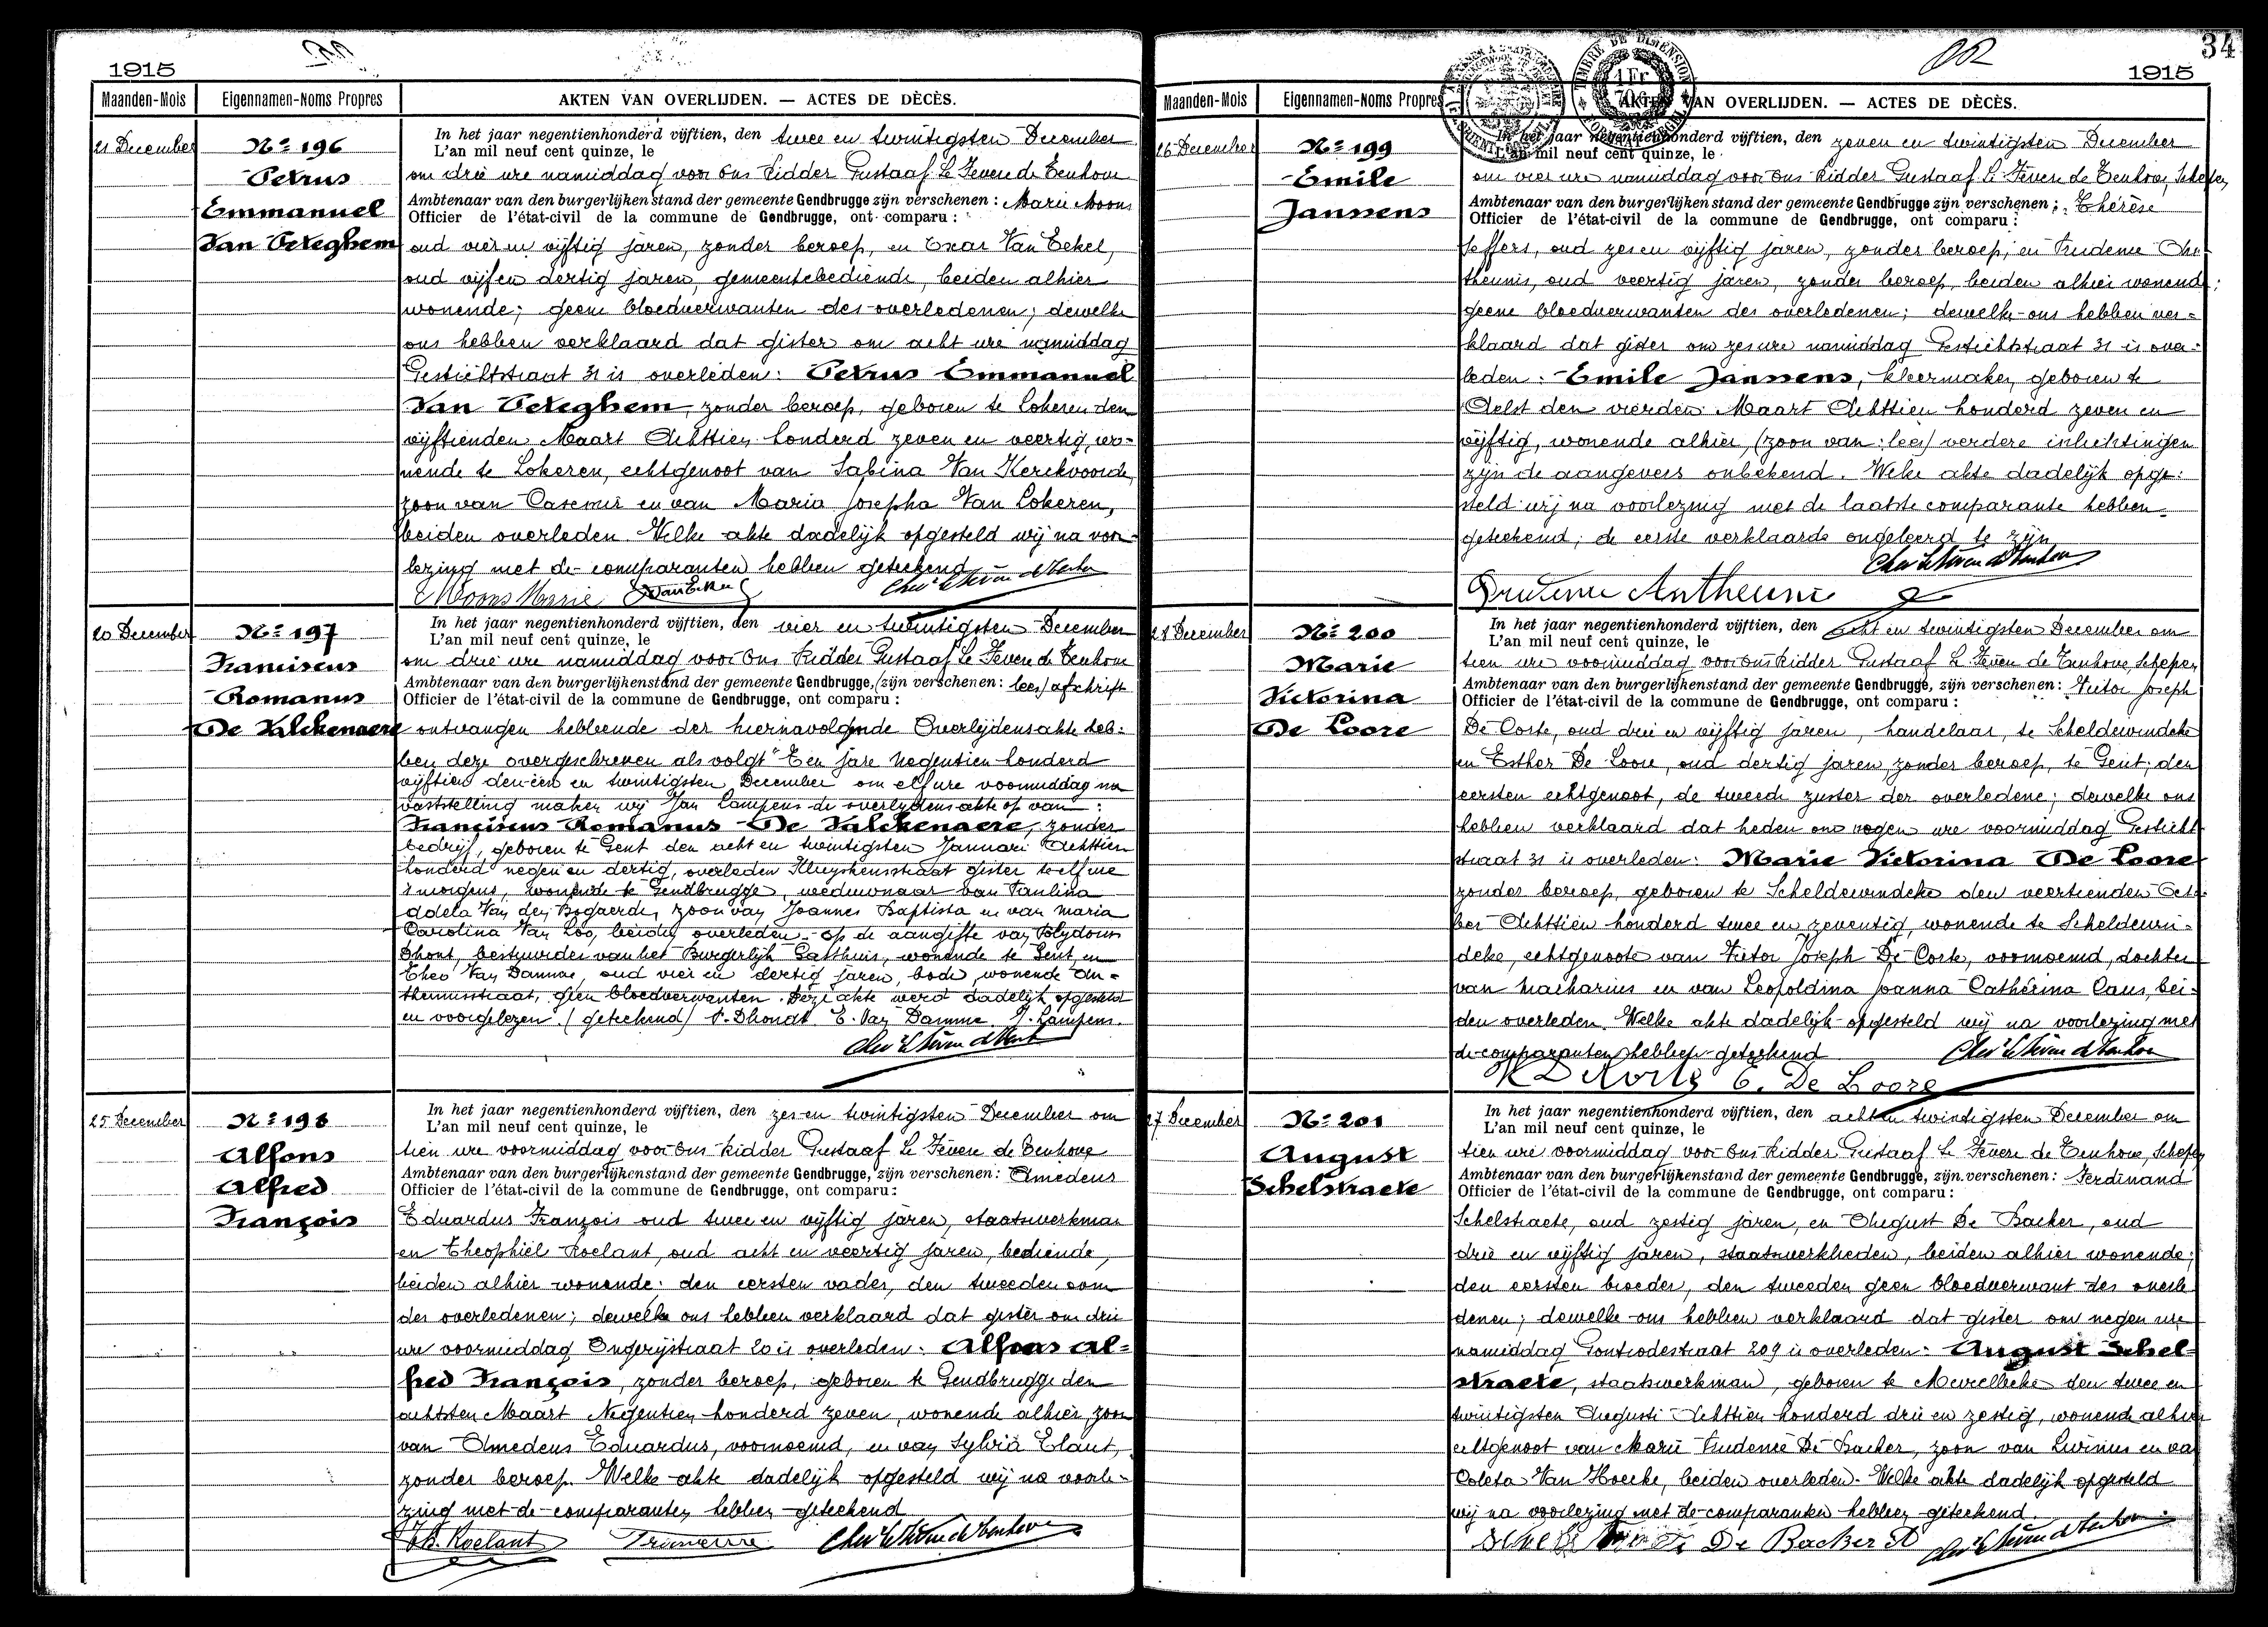 1915
Maanden-Mois
Eigennamen-Noms Propres
AKTEN VAN OVERLIJDEN. — ACTES DE DÉCÈS.
21 December
No 196
Petrus
Emmanuel
Van Peteghem
In het jaar negentienhonderd vijftien, den twee en twintigsten December
L'an mil neuf cent quinze, le
om drie ure namiddag voor Ons Ridder Gustaaf Le Fevere de Tenhove
Ambtenaar van den burgerlijken stand der gemeente Gendbrugge zijn verschenen : Marie Moons
Officier de l'état-civil de la commune de Gendbrugge, ont comparu :
oud vier en vijftig jaren, zonder beroep, en Oscar Van Eekel,
oud vijf en dertig jaren, gemeentebediende, beiden alhier
wonende; geene bloedverwanten des overledenen; dewelke
ons hebben verklaard dat gister om acht ure namiddag
Gestichtstraat 31 is overleden: Petrus Emmanuel
Van Peteghem, zonder beroep, geboren te Lokeren den
vijftienden Maart Achttien honderd zeven en veertig, wo-
nende te Lokeren, echtgenoot van Sabina Van Kerckvoorde,
zoon van Casemir en van Maria Josepha Van Lokeren,
beiden overleden. Welke akte dadelijk opgesteld wij na voor-
lezing met de comparanten hebben geteekend
Moons Marie
20 December
No 197
Franciscus
Romanus
De Valckenaere
In het jaar negentienhonderd vijftien, den vier en twintigsten December
L'an mil neuf cent quinze, le
om drie ure namiddag voor Ons Ridder Gustaaf Le Fevere de Tenhove
Ambtenaar van den burgerlijkenstand der gemeente Gendbrugge, (zijn verschenen : lees) afschrift
Officier de l'état-civil de la commune de Gendbrugge, ont comparu :
ontvangen hebbende der hiernavolgende Overlijdensakte heb-
ben deze overgeschreven als volgt "Een jare Negentien honderd
vijftien den een en twintigsten December om elf ure voormiddag na
vaststelling maken wij Jan Lampens de overlijdensakte op van :
Franciscus Romanus De Valckenaere, zonder
bedrijf, geboren te Gent den acht en twintigsten Januari Achttien
honderd negen en dertig, overleden Kluyskensstraat gister twelf ure
's morgens, wonende te Gendbrugge, weduwnaar van Paulina
Adela Van den Bogaerde, zoon van Joannes Baptista en van Maria
Carolina Van Loo, beiden overleden - op de aangifte van Polydoor
Dhont, bestuurder van het Burgerlijk Gasthuis, wonende te Gent, en
Theo Van Damme, oud vier en dertig jaren, bode, wonende An-
theunisstraat, geen bloedverwanten. Deze akte werd dadelijk opgesteld
en voorgelezen. (geteekend) P. Dhondt E. Van Damme J. Lampens.
25 December
No 198
Alfons
Alfred
François
In het jaar negentienhonderd vijftien, den zes en twintigsten December om
L'an mil neuf cent quinze, le
tien ure voormiddag voor Ons Ridder Gustaaf Le Fevere de Tenhove
Ambtenaar van den burgerlijkenstand der gemeente Gendbrugge, zijn verschenen : Amedeus
Officier de l'état-civil de la commune de Gendbrugge, ont comparu :
Eduardus François oud twee en vijftig jaren, staatswerkman
en Theophiel Roelant, oud acht en veertig jaren, bediende,
beiden alhier wonende; den eersten vader, den tweeden oom
des overledenen; dewelke ons hebben verklaard dat gister om drie
ure voormiddag Engerijstraat 20 is overleden: Alfons Al-
fred François, zonder beroep, geboren te Gendbrugge den
achtsten Maart Negentien honderd zeven, wonende alhier, zoon
van Amedeus Eduardus, voornoemd, en van Sylvia Elaut,
zonder beroep. Welke akte dadelijk opgesteld wij na voorle-
zing met de comparanten hebben geteekend
Th. Roelant
34
1915
Maanden-Mois
Eigennamen-Noms Propres
AKTEN VAN OVERLIJDEN. — ACTES DE DÉCÈS.
TIMBRE DE DIMENSION
1 Fr
26 December
No 199
Emile
Janssens
In het jaar negentienhonderd vijftien, den zeven en twintigsten December
L'an mil neuf cent quinze, le
om vier ure namiddag voor Ons Ridder Gustaaf Le Fevere de Tenhove, Schepen,
Ambtenaar van den burgerlijken stand der gemeente Gendbrugge zijn verschenen : Thérèse
Officier de l'état-civil de la commune de Gendbrugge, ont comparu :
Seffers, oud zes en vijftig jaren, zonder beroep, en Prudence An-
theunis, oud veertig jaren, zonder beroep, beiden alhier wonend;
geene bloedverwanten des overledenen; dewelke ons hebben ver-
klaard dat gister om zes ure namiddag Gestichtstraat 31 is over-
leden: Emile Janssens, kleermaker, geboren te
Aelst den vierden Maart Achttien honderd zeven en
vijftig, wonende alhier, (zoon van: lees) verdere inlichtingen
zijn de aangevers onbekend. Welke akte dadelijk opge-
steld wij na voorlezing met de laatste comparante hebben
geteekend; de eerste verklaarde ongeleerd te zijn
Prudence Antheunis
28 December
No 200
Marie
Victorina
De Loore
In het jaar negentienhonderd vijftien, den acht en twintigsten December om
L'an mil neuf cent quinze, le
tien ure voormiddag voor Ons Ridder Gustaaf Le Fevere de Tenhove, Schepen,
Ambtenaar van den burgerlijkenstand der gemeente Gendbrugge, zijn verschenen : Victor Joseph
Officier de l'état-civil de la commune de Gendbrugge, ont comparu :
De Corte, oud drie en vijftig jaren, handelaar, te Scheldewindeke
en Esther De Loore, oud dertig jaren, zonder beroep, te Gent; den
eersten echtgenoot, de tweede zuster der overledene; dewelke ons
hebben verklaard dat heden om negen ure voormiddag Gesticht-
straat 31 is overleden: Marie Victorina De Loore
zonder beroep, geboren te Scheldewindeke den veertienden Octo-
ber Achttien honderd twee en zeventig, wonende te Scheldewin-
deke, echtgenoote van Victor Joseph De Corte, voornoemd, dochter
van Macharius en van Leopoldina Joanna Catherina Caus, bei-
den overleden. Welke akte dadelijk opgesteld wij na voorlezing met
de comparanten hebben geteekend
E. De Loore
27 December
No 201
August
Schelstraete
In het jaar negentienhonderd vijftien, den acht en twintigsten December om
L'an mil neuf cent quinze, le
tien ure voormiddag voor Ons Ridder Gustaaf Le Fevere de Tenhove, Schepen
Ambtenaar van den burgerlijkenstand der gemeente Gendbrugge, zijn verschenen : Ferdinand
Officier de l'état-civil de la commune de Gendbrugge, ont comparu :
Schelstraete, oud zestig jaren, en August De Backer, oud
drie en vijftig jaren, staatswerklieden, beiden alhier wonende;
den eersten broeder, den tweeden geen bloedverwant des overle
denen; dewelke ons hebben verklaard dat gister om negen ure
namiddag Gontrodestraat 209 is overleden: August Schel-
straete, staatswerkman, geboren te Meirelbeke den twee en
twintigsten Augusti Achttien honderd drie en zestig, wonende alhier
echtgenoot van Marie Prudence De Backer, zoon van Livinus en va
Coleta Van Hoecke, beiden overleden. Welke akte dadelijk opgesteld
wij na voorlezing met de comparanten hebben geteekend.
De Backer A